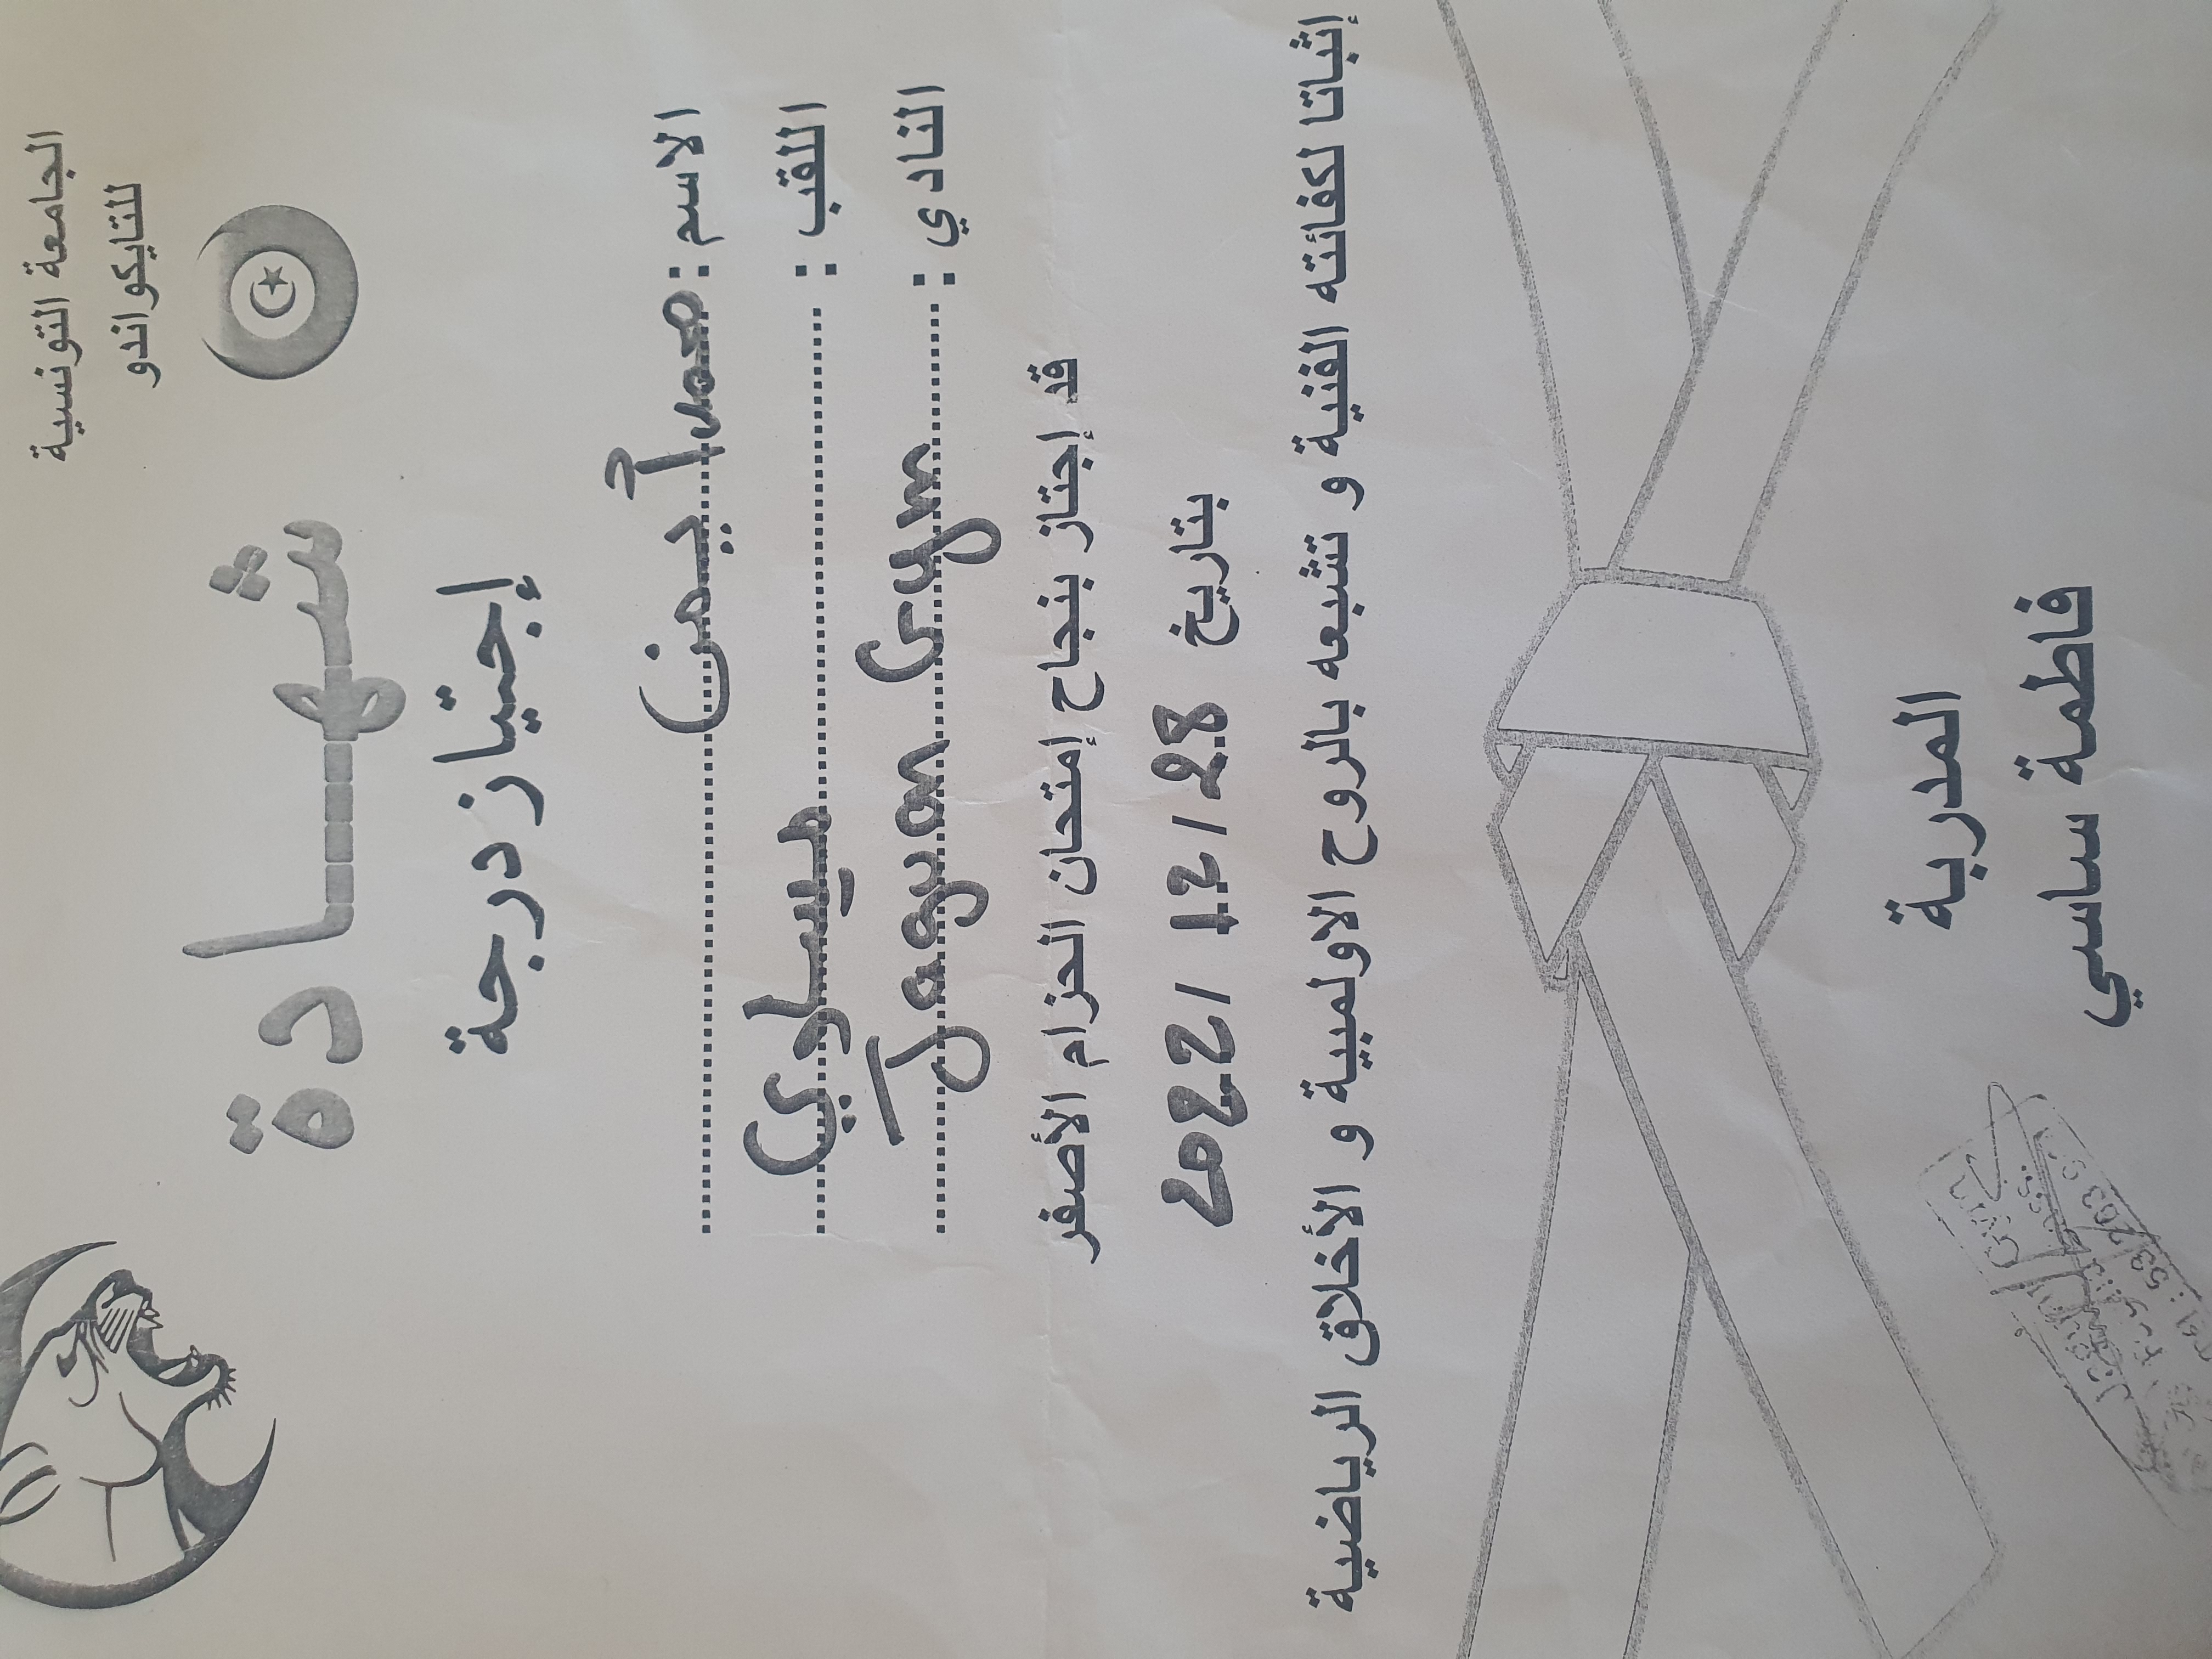 الجامعة التونسية
للتايكواندو
شهادة
إجتياز درجة
الاسم : محمد أيمن
اللقب : ميساوي
النادي : Jaguar Gym
قد إجتاز بنجاح إمتحان الحزام الأصفر
بتاريخ 28 / 12 / 2022
إثباتا لكفائته الفنية و تشبعه بالروح الاولمبية و الأخلاق الرياضية
المدربة
فاطمة ساسي
Gym